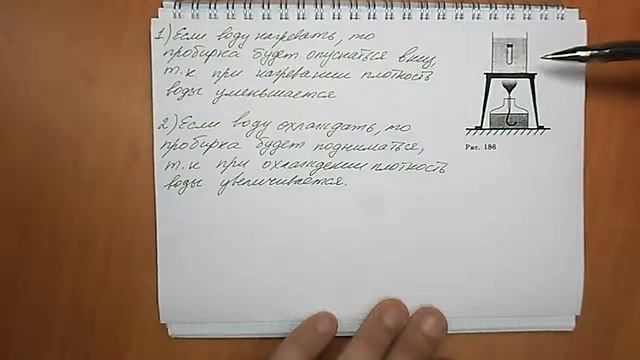 1) Если воду нагревать, то
пробирка будет опускаться вниз,
т.к при нагревании плотность
воды уменьшается
2) Если воду охлаждать, то
пробирка будет подниматься,
т.к при охлаждении плотность
воды увеличивается.
Рис. 186